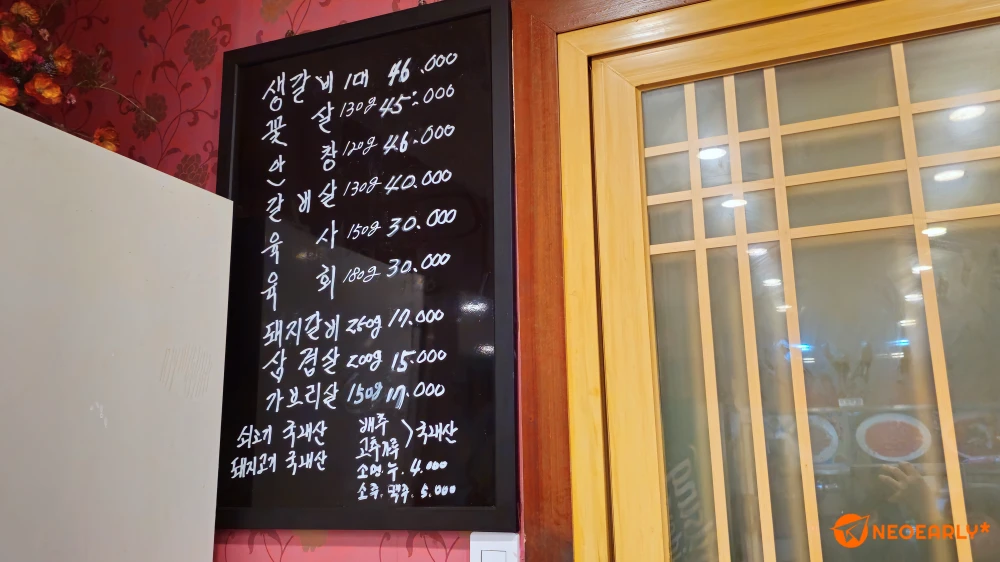 생갈비 1대 46.000
꽃 살 130g 45.000
안 창 120g 46.000
갈비살 130g 40.000
육 사 150g 30.000
육 회 180g 30.000
돼지갈비 250g 17.000
삼겹살 200g 15.000
가브리살 150g 17.000
쇠고기 국내산
돼지고기 국내산
배추
고추가루 〉국내산
4.000
소주.맥주. 5.000
NEGEARLY*